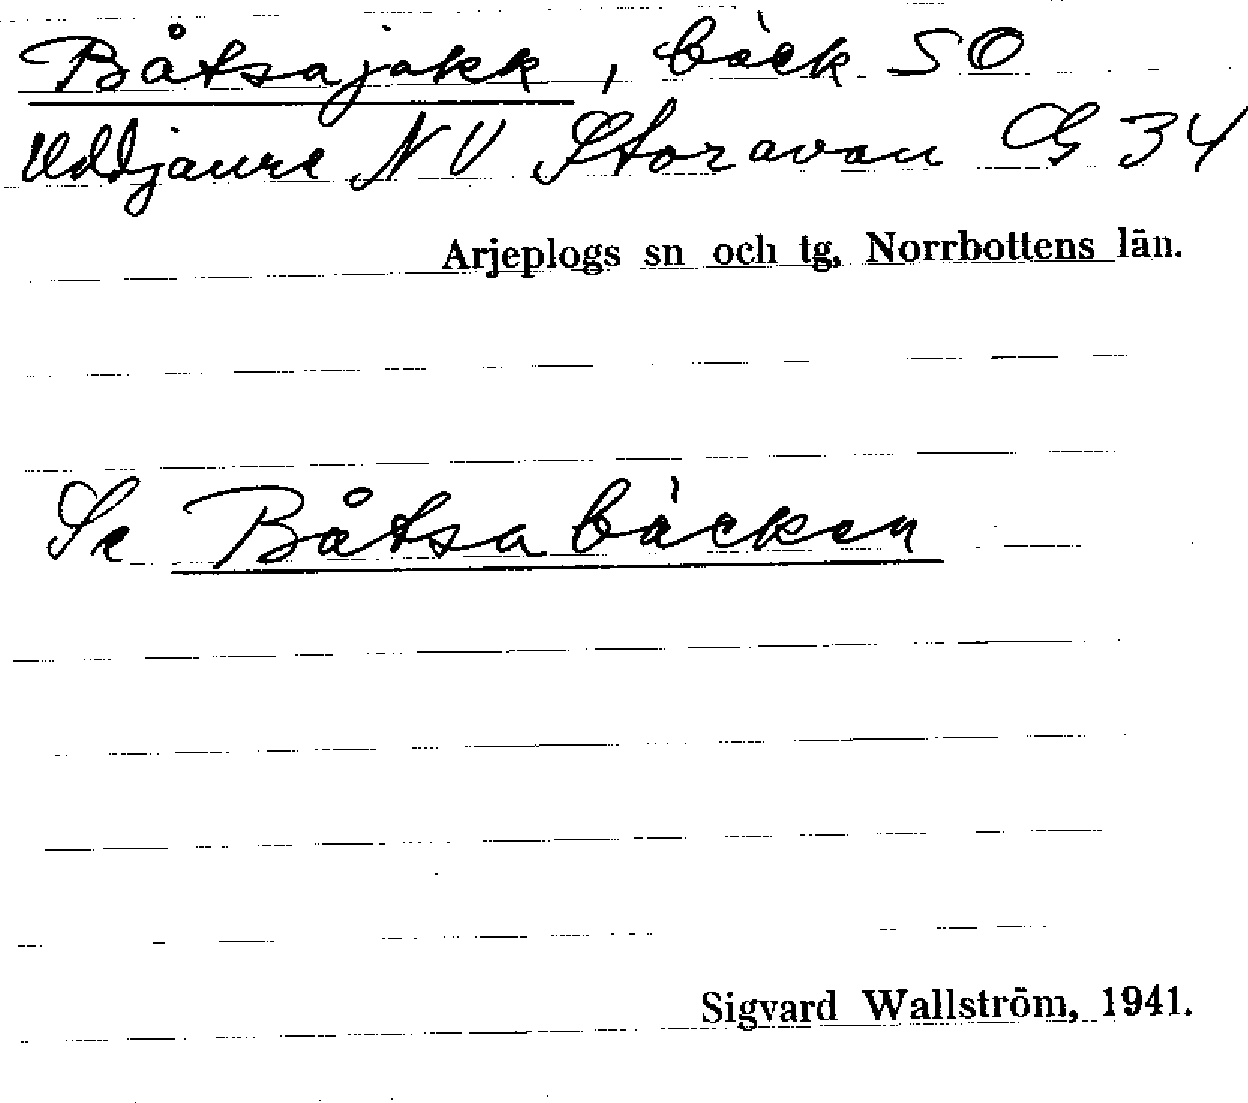 Båtsajakk, bäck SO
Uddjaure NV Storavan G 34
Arjeplogs sn och tg, Norrbottens län.
Se Båtsabäcken
Sigvard Wallström, 1941.